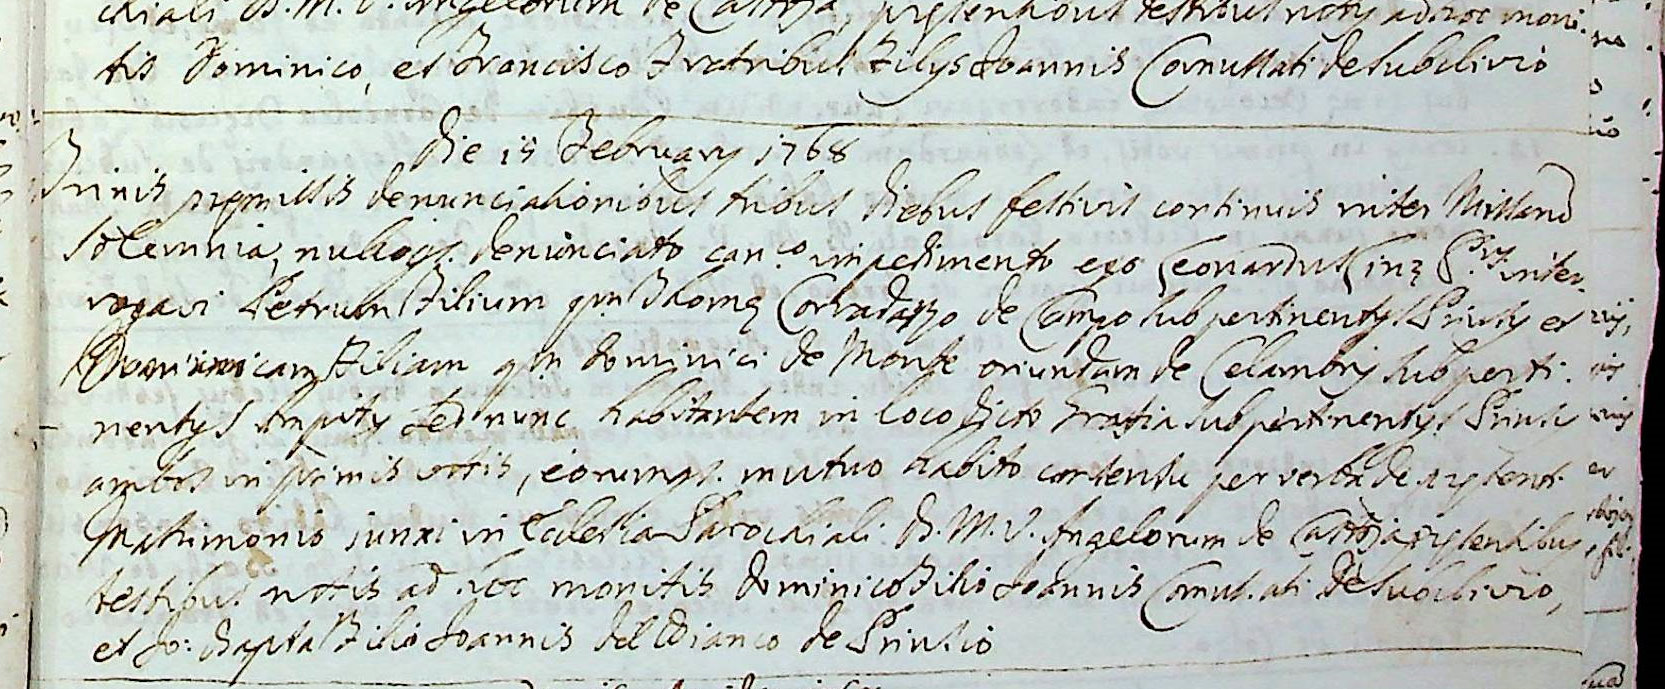 chiali B. M. V. Angelorum de Cattoja, pręsentibus testibus notis ad hoc moni-
tis Dominico, et Francisco Fratribus Filijs Joannis Comussati de Subclivio
Die 15 February 1768
Trinis pręmissis denunciationibus tribus diebus festivis continuis inter Missarũ
Solemnia, nulloqꝫ denunciato can.co impedimento ego Leonardus inter-
rogavi Petrum Filium qm Thomę Corradazzo de Campo sub pertinentijs Priusij et
Dominicam Filiam qm Dominici de Monte oriundam de Celantis sub perti-
nentijs Impity sed nunc habitantem in loco dicto Fratta sub pertinentijs Priusij
ambos in primis votis, eorumqꝫ mutuo habito consensu per verba de pręsenti
Matrimonio junxi in Ecclesia Parochiali B. M. V. Angelorum de Cattoja pręsentibus
testibus notis ad hoc monitis Dominico Filio Joannis Comussati de Subclivio,
et Jo: Bapta Filio Joannis del Bianco de Priusio